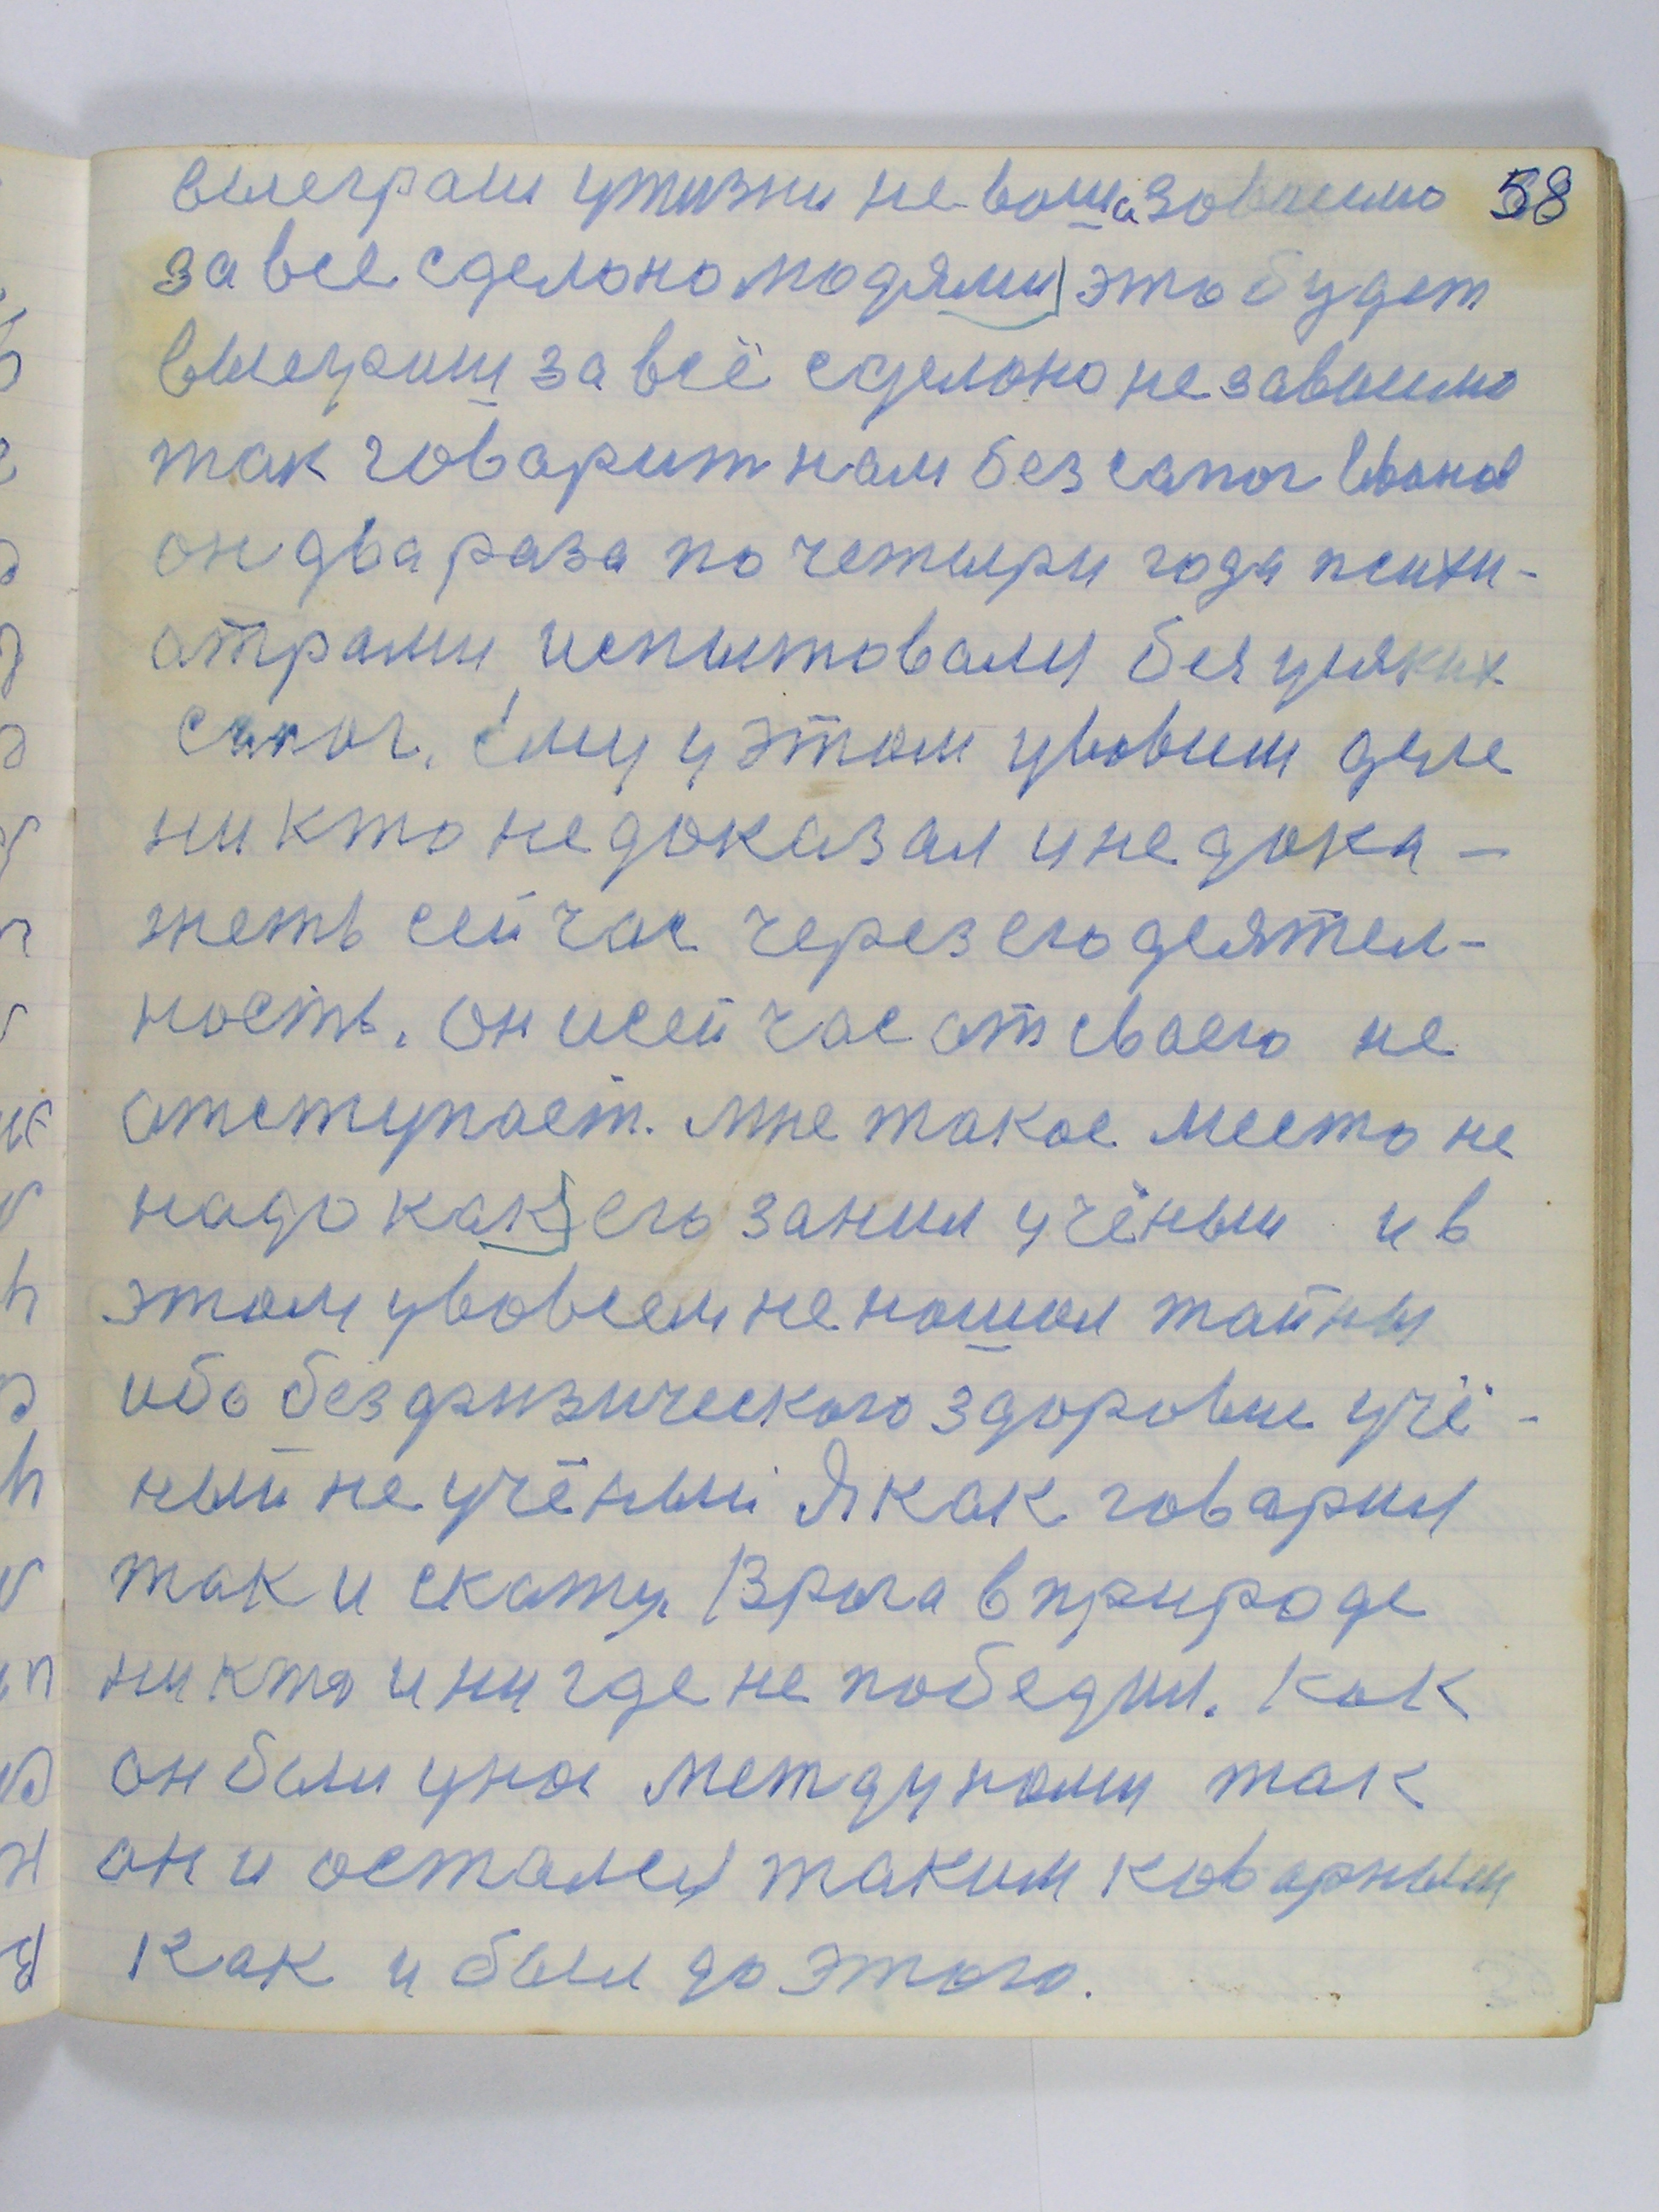 выеграш ужизни не ваша зовисимо 58
за все сделоно людями это будет
выеграш за всё сделоно не зависимо
так говарит нам без сапог Ивонов
он два раза по четыри года психи-
атрами испытовали без усяких
сапог. Ему у этом увовсем деле
ни кто недоказал и не дока-
жеть сей час через его деятел-
ность. он и сей час от своего не
атступает. мне такое место не
надо как его занил учёным и в
этом увовсем не нашол тайны
ибо без физического здоровие учё-
ный не учёный Я как говарил
так и скажу. Врага в природе
ни кто и ни где не победил. Как
он был у нас между нами так
он и осталсы таким коварным
как и был до этого.